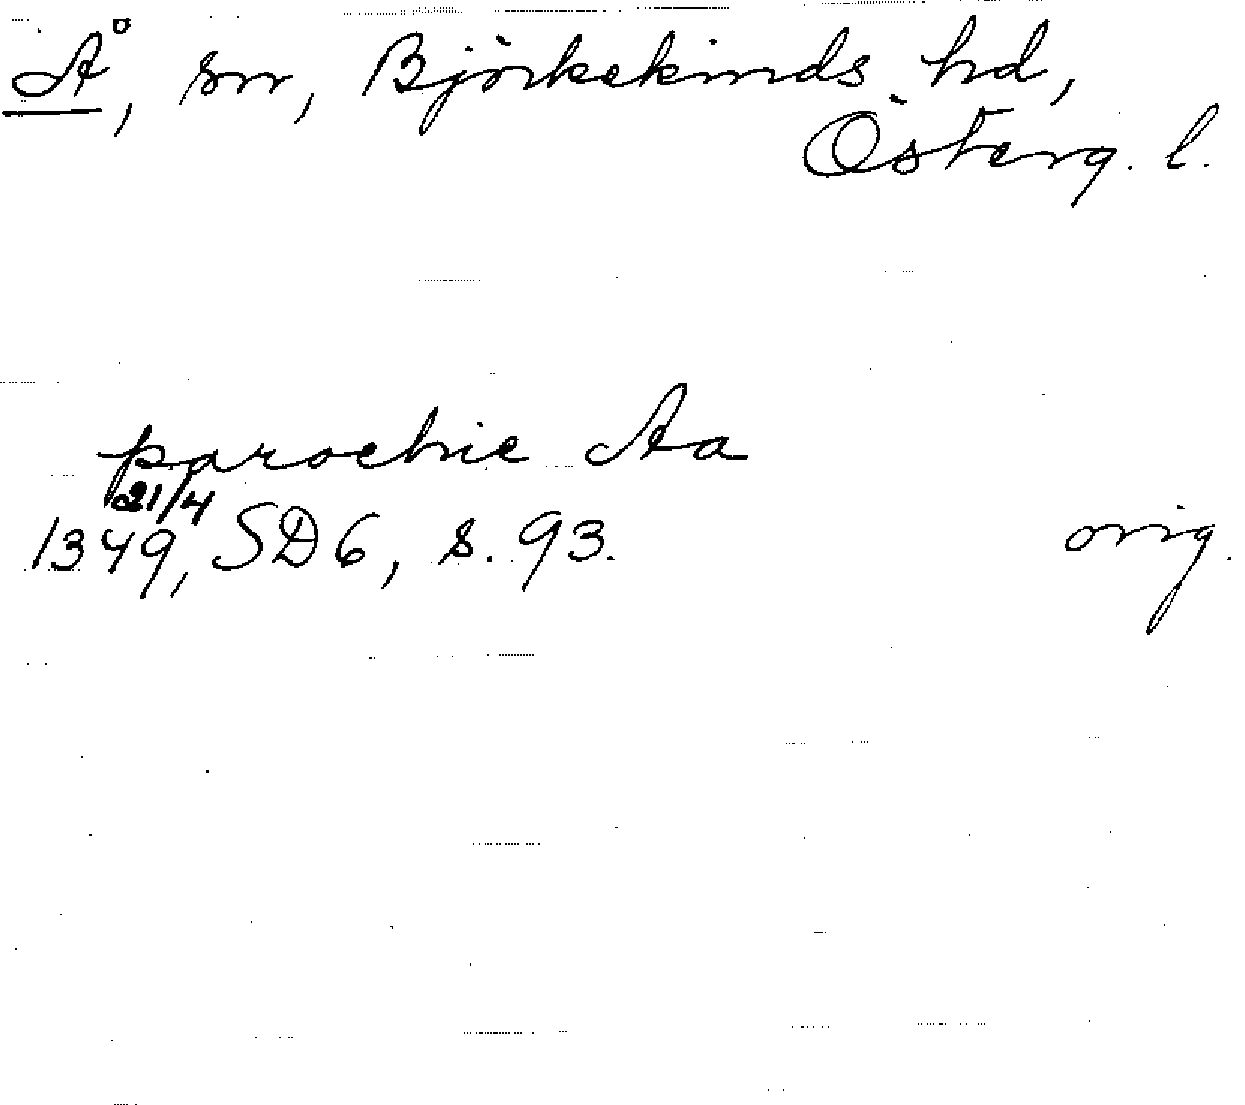 Å, sn, Björkekinds hd,
Österg. l.
parochie Aa
21/4
1349, SD 6, s. 93. orig.